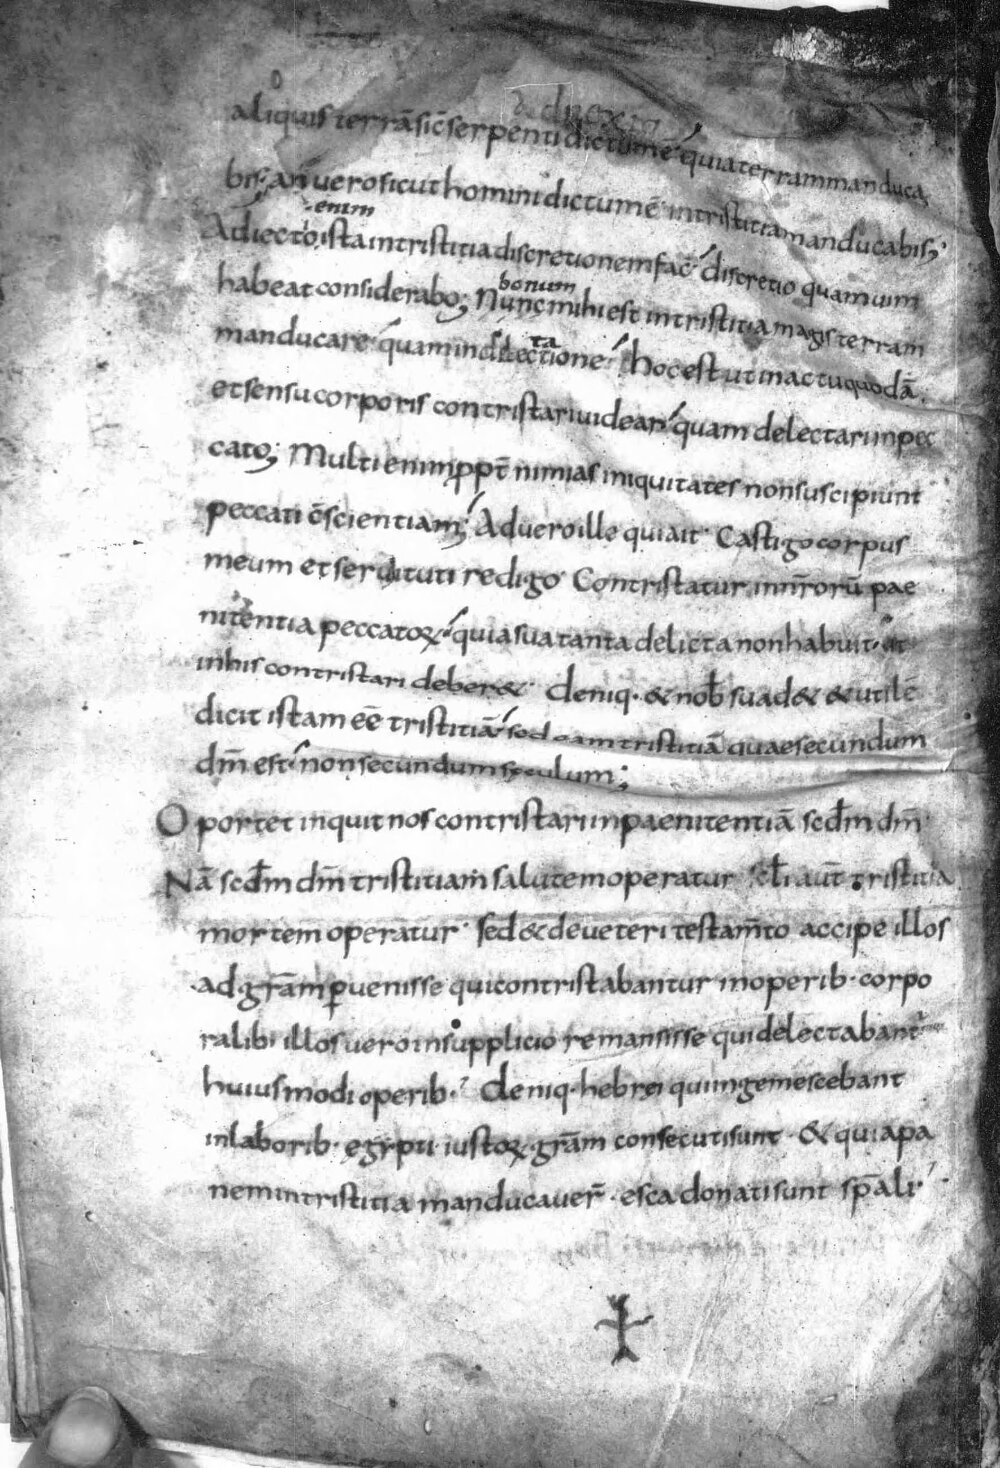 aliquis terrā sic̄ serpenti dictum ē quia terram manduca
bis; an vero sicut homini dictum ē in tristitia manducabis;
enim
Adiecto ista in tristitia discretionem fac̄ discretio quam uim
habeat considerabo; Nunc mihi est in tristitia magis terram
bonum
manducare quam in dilectione hoc est ut in actu quodā
ta
et sensu corporis contristari videar quam delectari in pec
cato; Multi enim ppt̄ nimias iniquitates non suscipiunt
peccati c̄scientiam; Ad vero ille qui ait Castigo corpus
meum et servituti redigo Contristatur in nr̄orū pae
nitentia peccatoꝝ quia sua tanta delicta non habuit ut
in his contristari deber& deniq· & nob̄ suad& & utilē
dicit istam eē tristitiā sed eam tristitiā quae secundum
dm̄ est non secundum seculum;
Oportet inquit nos contristari in paenitentiā scd̄m dm̄
Nā scd̄m dm̄ tristitiam salutem operatur scl̄i aut̄ tristitia
mortem operatur sed & de veteri testam̄to accipe illos
ad gr̄am ꝑvenisse qui contristabantur in operib· corpo
ralib; illos vero in supplicio remansisse qui delectabant̄
huiusmodi operib· deniq· hebrei qui ingemescebant
in laborib· egypti iustoꝝ gr̄am consecuti sunt & qui apa
nem in tristitia manducaver̄ esca donati sunt sp̄ali